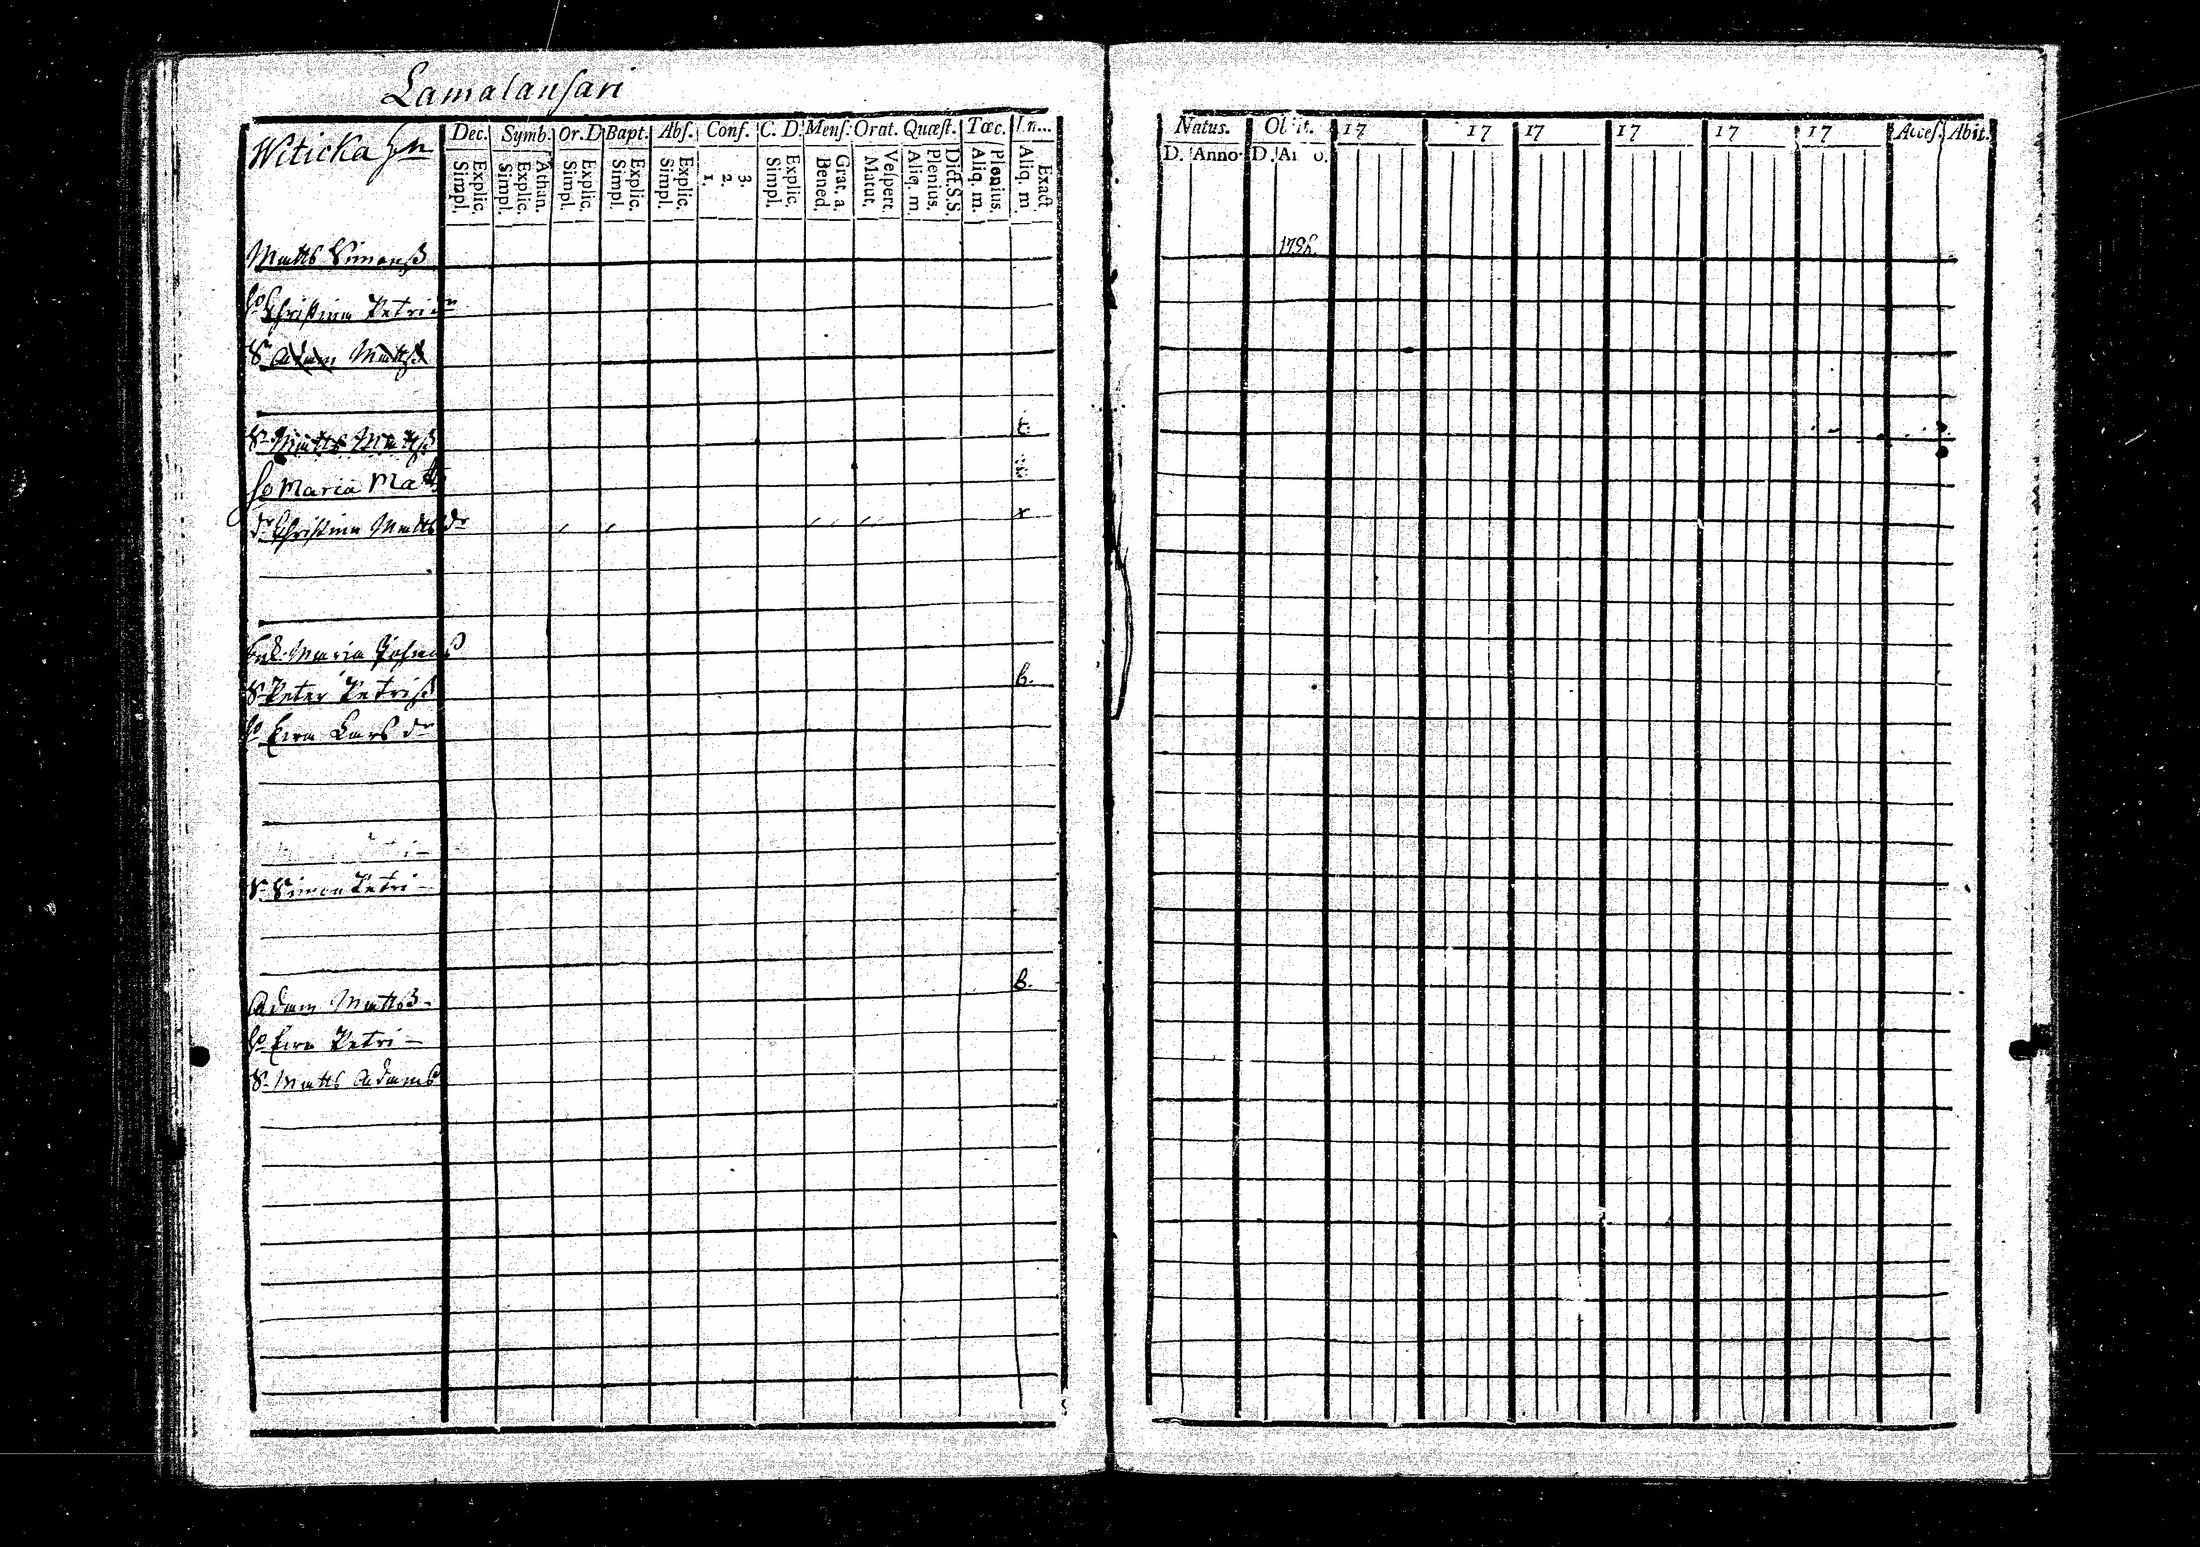 Lamalansari
Witicka
Dec. Symb. Or. D Bapt. Abs. Conf. C. D. Mens. Orat. Quæst. Tæc.
Explic. Simpl. Athan. Explic. Simpl. Explic. Simpl. Explic. Simpl. Explic. Simpl. 3. 2. 1. Explic. Simpl. Grat. a. Bened. Vespert. Matut. Dict. S.S. Plenius. Aliq. m. Plenius. Aliq. m. Exact Aliq. m.
Matts Simonss
ho Christina Petri dr
Sn Adam Mattss
Sn Matts Mattss
ho Maria Matts
dr Christina Matts dr
Maria
Sn Peter Petriss b.
ho Eva Lars dr
Sn Simon Petri –
Adam Mattss – b.
ho Eva Petri –
Sn Matts Adams
Natus. Obiit. 17 17 17 17 17 17 Acces. Abit.
D. Anno D.